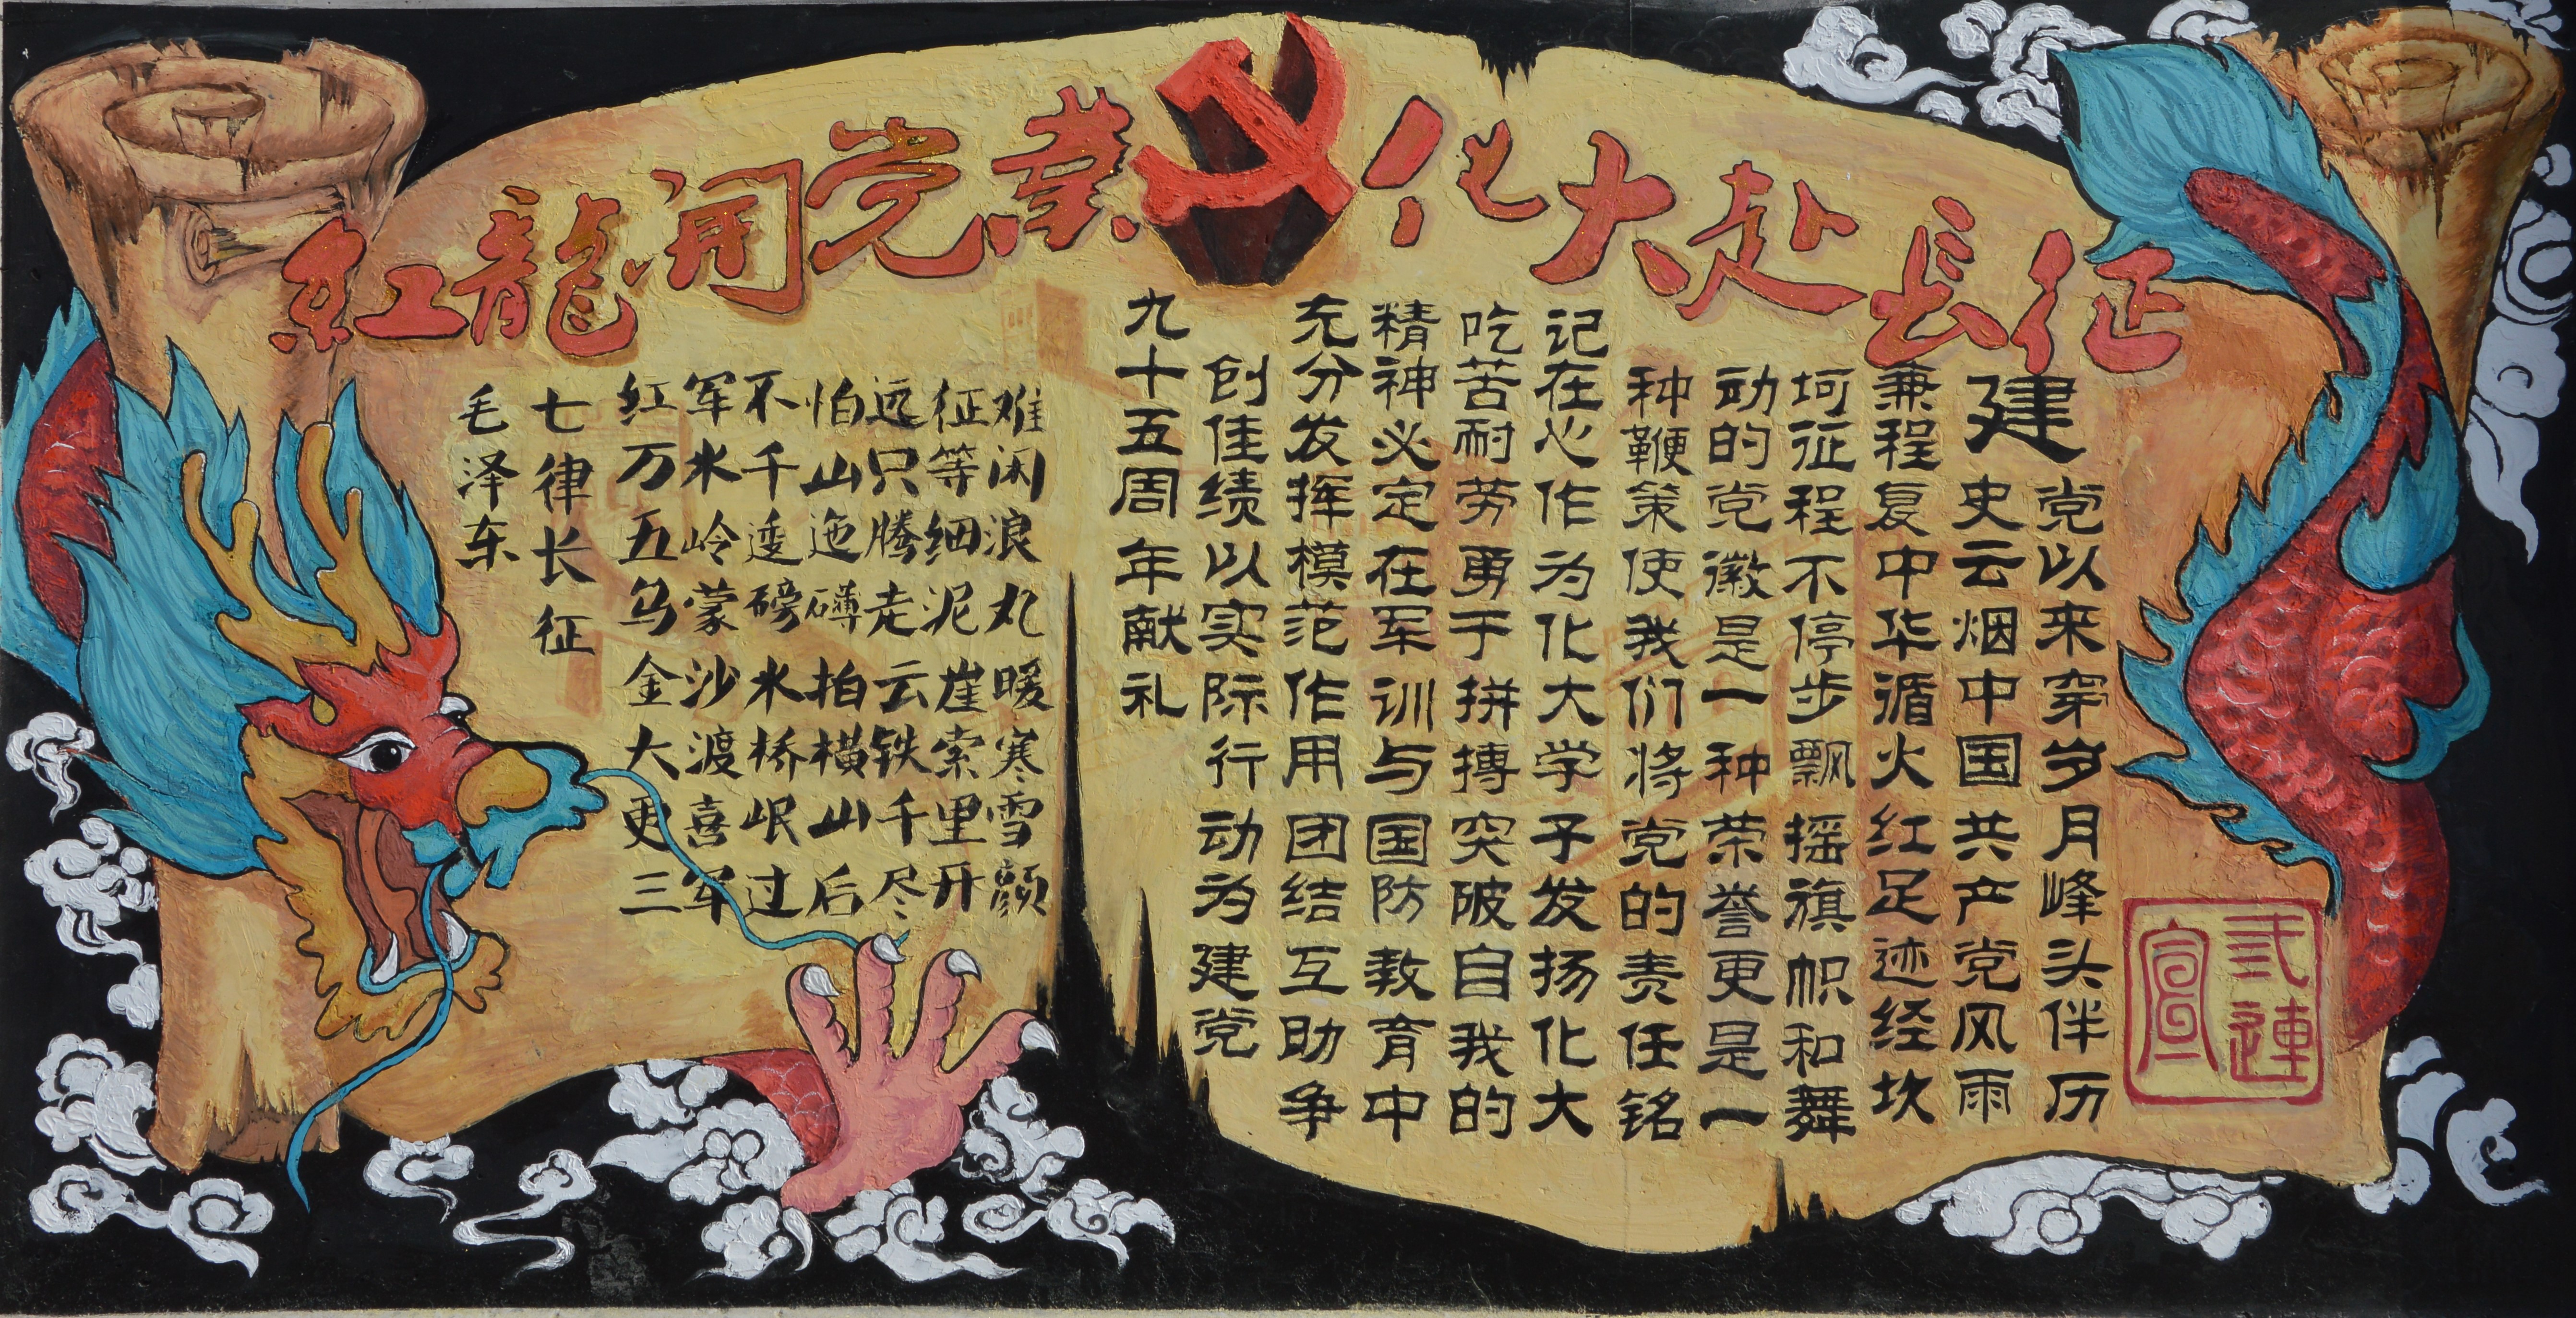 紅龍開党業化大赴長征
建
党以来穿岁月峰头伴历
史云烟中国共产党风雨
兼程复中华循火红足迹经坎
坷征程不停步飘摇旗帜和舞
动的党徽是一种荣誉更是一
种鞭策使我们将党的责任铭
记在心作为化大学子发扬化大
吃苦耐劳勇于拼搏突破自我的
精神必定在军训与国防教育中
充分发挥模范作用团结互助争
创佳绩以实际行动为建党
九十五周年献礼
七律长征
毛泽东
红军不怕远征难
万水千山只等闲
五岭逶迤腾细浪
乌蒙磅礴走泥丸
金沙水拍云崖暖
大渡桥横铁索寒
更喜岷山千里雪
三军过后尽开颜
弍連宣